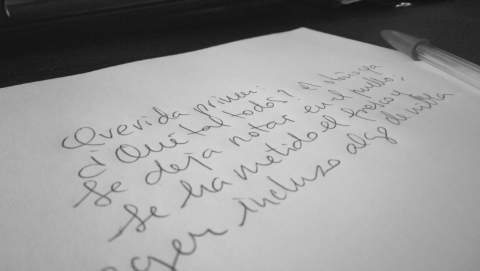 Querida prima:
¿Qué tal todos? El otoño ya
se deja notar en el pueblo,
se ha metido el fresco y
ayer incluso algo de niebla